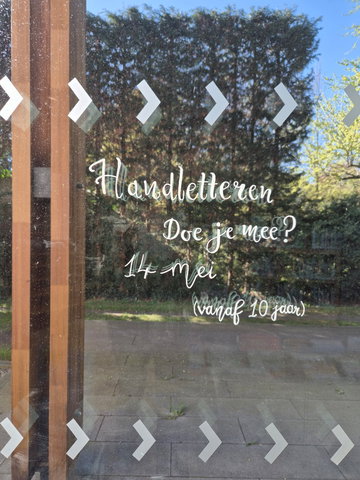 Handletteren
Doe je mee?
14 mei
(vanaf 10 jaar)